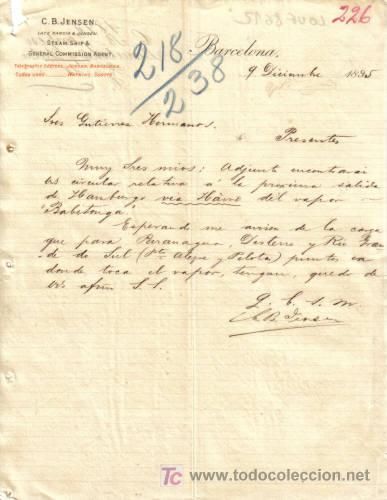 C. B. JENSEN.
LATE GARCIA & JENSEN.
STEAM SHIP &
GENERAL COMMISSION AGENT.
Telegraphic Address: JENSEN BARCELONA.
Codes used: WATKINS, SCOTTS.
226
218/238
Barcelona,
9 Diciembre 1895
Sres Gutierrez Hermanos.
Presentes
Muy Sres mios: Adjunt encontrarán
Vs circular relativa á la proxima salida
de Hamburgo via Hâvre del vapor
"Babitonga"
Esperando me avisen de la carga
que para Paranagua, Desterro y Rio Grande
do Sul (Pto Alegre y Pelota) puertos en
donde toca el vapor, tengan, quedo de
Vds afmo S. S.
Q. B. S. M.
C. B. Jensen
TC
todocoleccion
www.todocoleccion.net